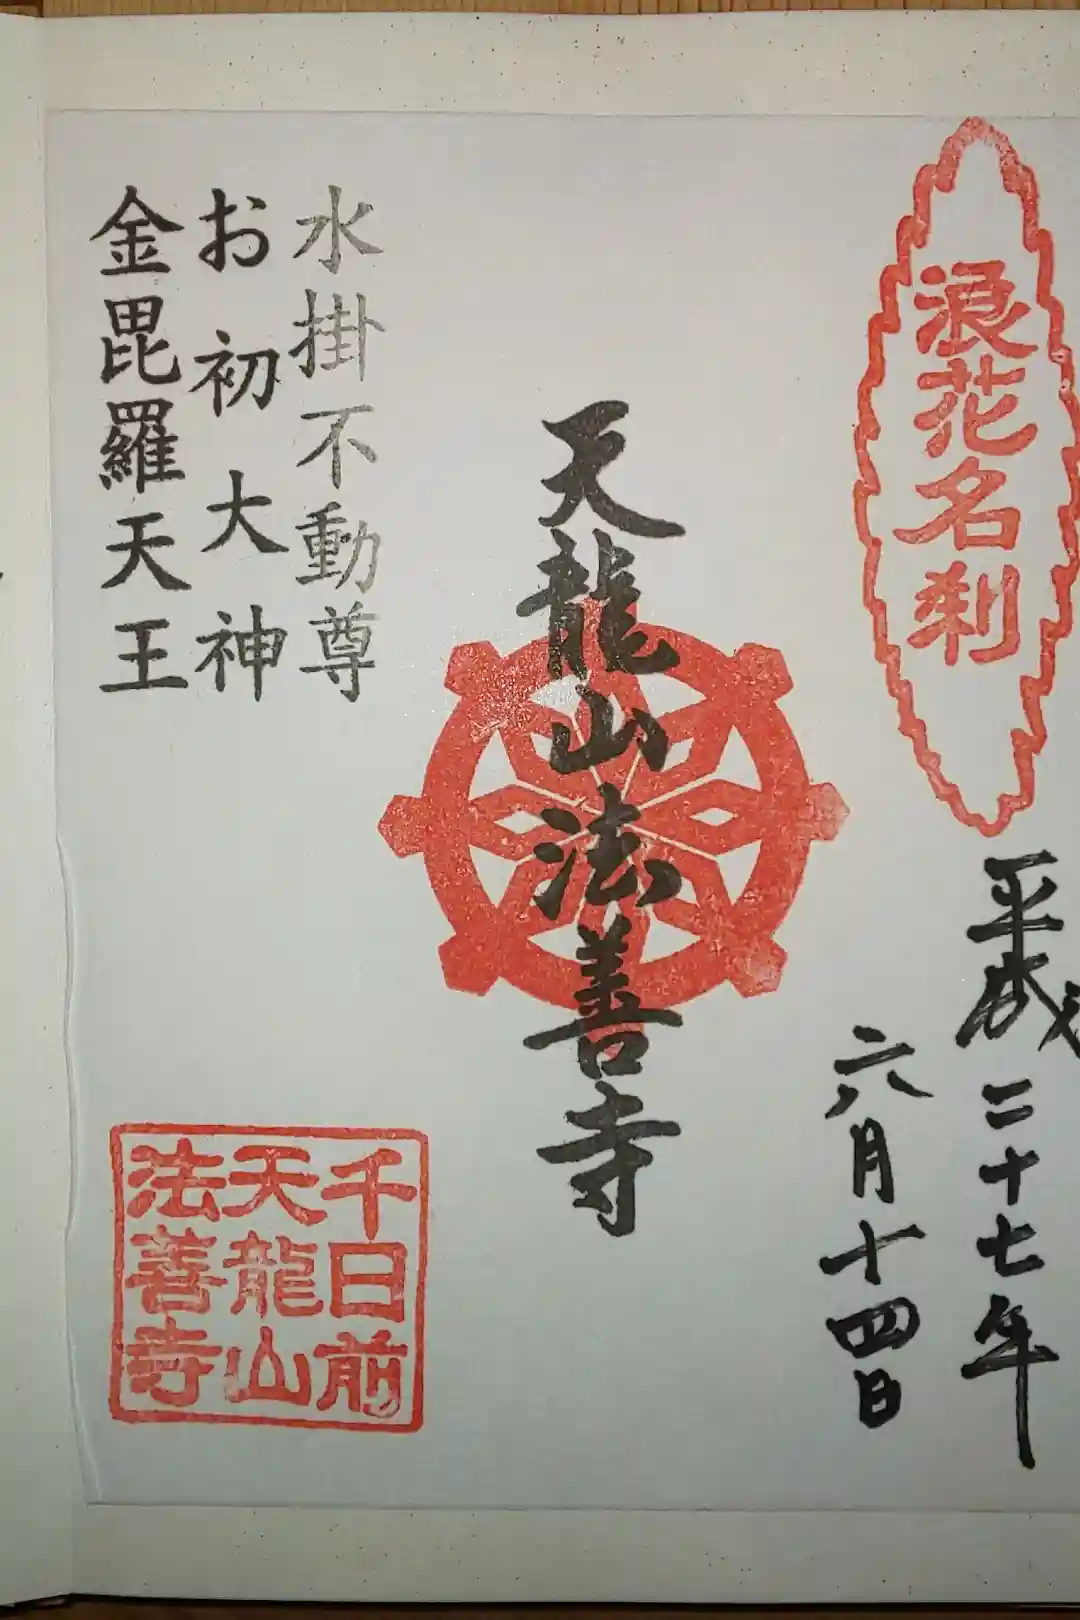 浪花名刹
平成二十七年
六月十四日
天龍山法善寺
水掛不動尊
お初大神
金毘羅天王
千日前
天龍山
法善寺